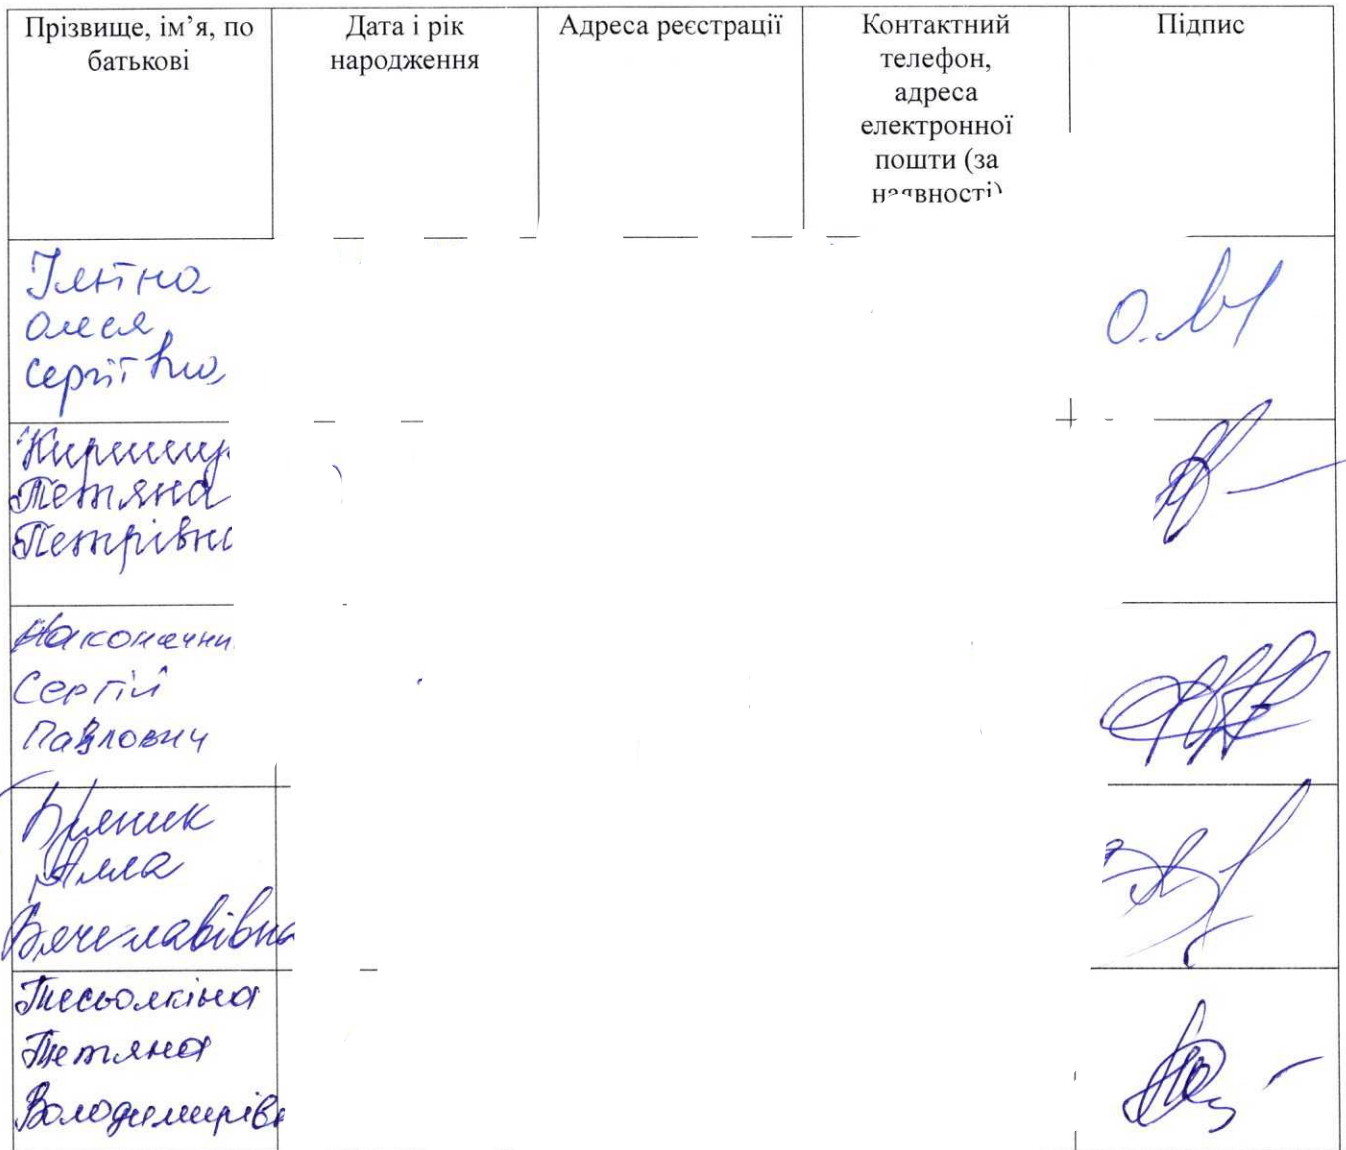 Прізвище, ім’я, по
батькові
Дата і рік
народження
Адреса реєстрації
Контактний
телефон,
адреса
електронної
пошти (за
наявності)
Підпис
Олеся
Сергіївна
Тетяна
Петрівна
Наконечни
Сергій
Павлович
Алла
Вячеславівна
Тесьолкіна
Тетяна
Володимирівн